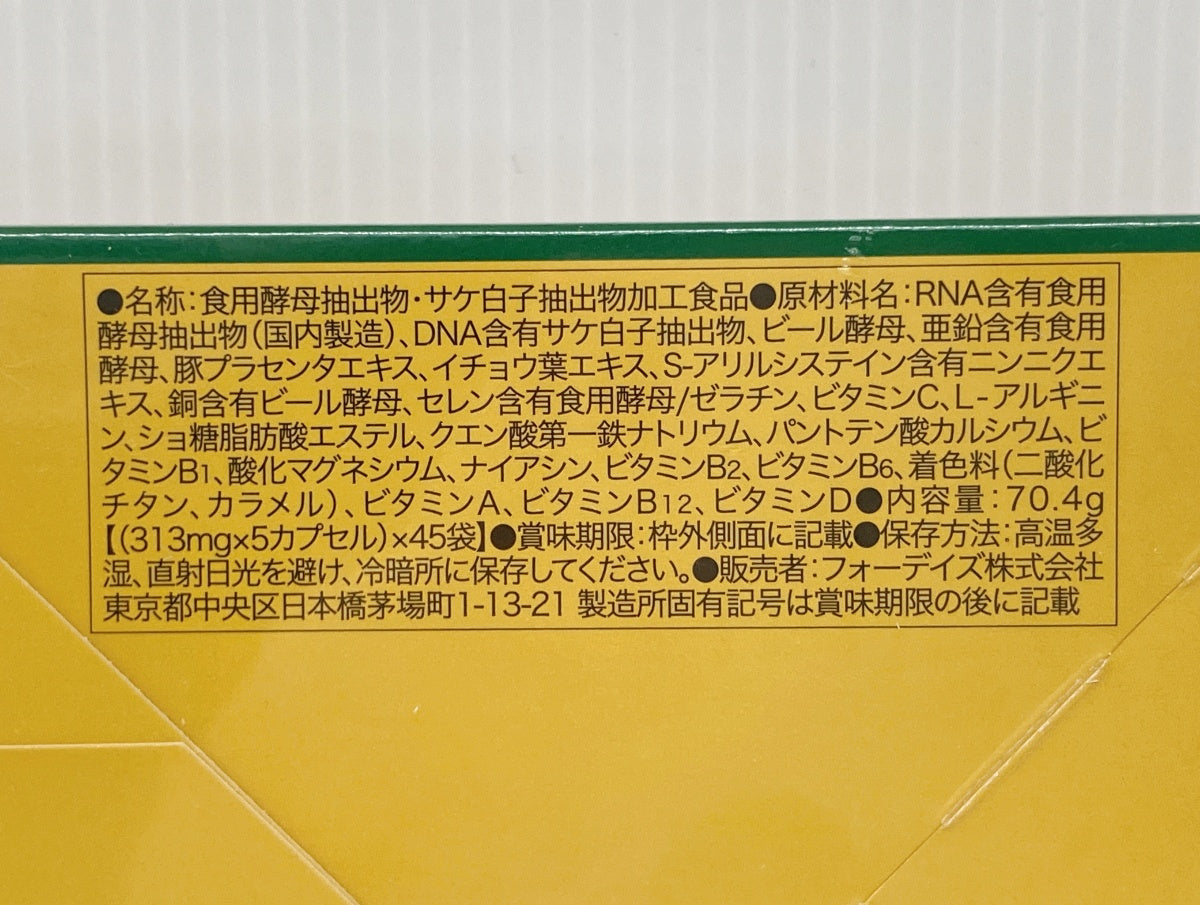 ●名称：食用酵母抽出物・サケ白子抽出物加工食品●原材料名：RNA含有食用
酵母抽出物（国内製造）、DNA含有サケ白子抽出物、ビール酵母、亜鉛含有食用
酵母、豚プラセンタエキス、イチョウ葉エキス、S-アリルシステイン含有ニンニクエ
キス、銅含有ビール酵母、セレン含有食用酵母/ゼラチン、ビタミンC、L-アルギニ
ン、ショ糖脂肪酸エステル、クエン酸第一鉄ナトリウム、パントテン酸カルシウム、ビ
タミンB1、酸化マグネシウム、ナイアシン、ビタミンB2、ビタミンB6、着色料（二酸化
チタン、カラメル）、ビタミンA、ビタミンB12、ビタミンD●内容量：70.4g
【（313mg×5カプセル）×45袋】●賞味期限：枠外側面に記載●保存方法：高温多
湿、直射日光を避け、冷暗所に保存してください。●販売者：フォーデイズ株式会社
東京都中央区日本橋茅場町1-13-21 製造所固有記号は賞味期限の後に記載